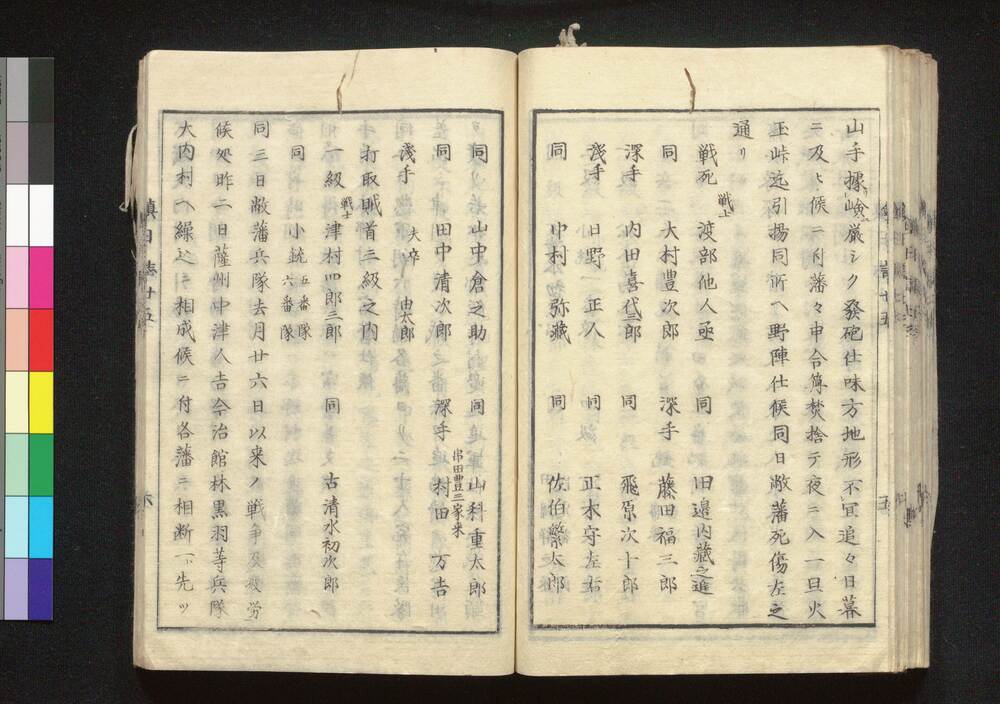 山手據嶮厳シク發砲仕味方地形不冝追々日暮
ニ及ヒ候ニ付藩々申合等焚捨テ夜ニ入一旦火
玉峠迄引揚同所ヘ野陣仕候同日敝藩死傷左之
通リ
戦死 戦士 渡部他人亟 同 田邉内藏之進
同 大村豊次郎 深手 藤田福三郎
深手 内田喜代三郎 同 飛原次十郎
淺手 日野正人 同 正木守左右
同 中村弥藏 同 佐伯繁太郎
同 山中倉之助 同 山科重太郎
同 田中清次郎 深手 串田豊三家来 村田万吉
淺手 夫卒 由太郎
打取賊首三級之内
一級 戦士 津村四郎三郎 同 古清水初次郎
同 小銃 五番隊 六番隊
同三日敝藩兵隊去月廿六日以来ノ戦争及疲労
候処昨二日薩州中津人吉今治館林黒羽等兵隊
大内村ヘ繰込引相成候ニ付各藩ニ相断一ト先ツ
六